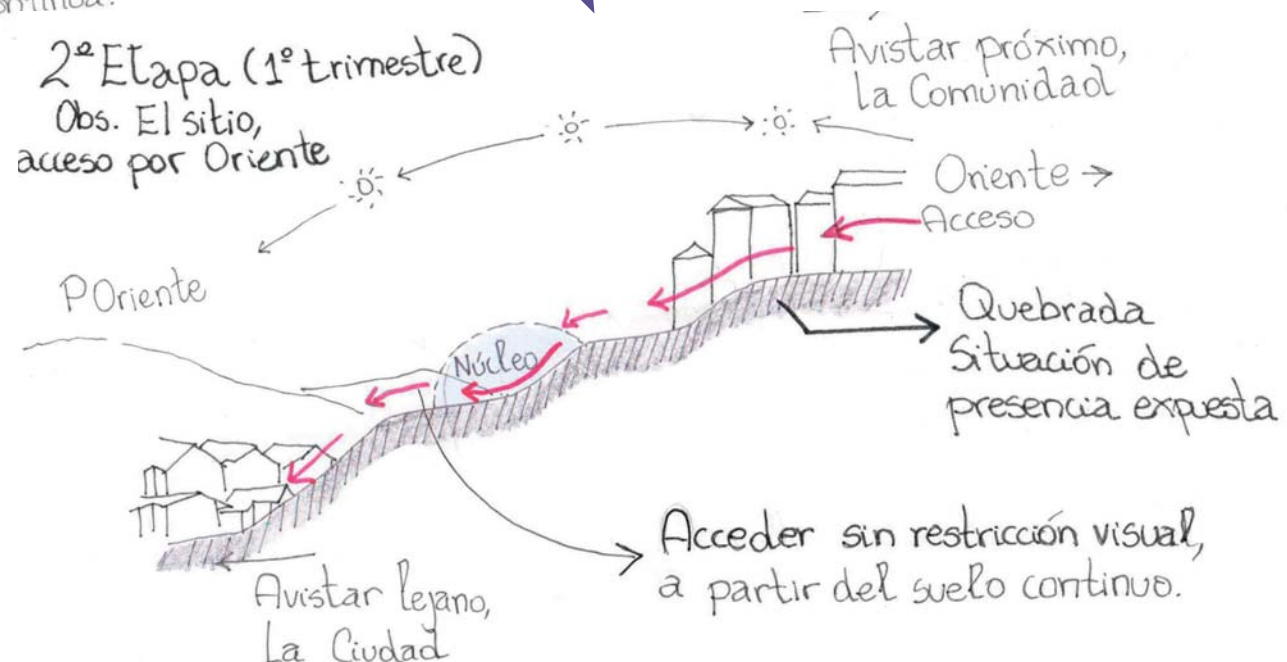 2ª Etapa (1º trimestre)
Obs. El sitio,
acceso por Oriente
Avistar próximo,
la Comunidad
Oriente →
Acceso
POriente
Núcleo
Quebrada
Situación de
presencia expuesta
Acceder sin restricción visual,
a partir del suelo continuo.
Avistar lejano,
La Ciudad